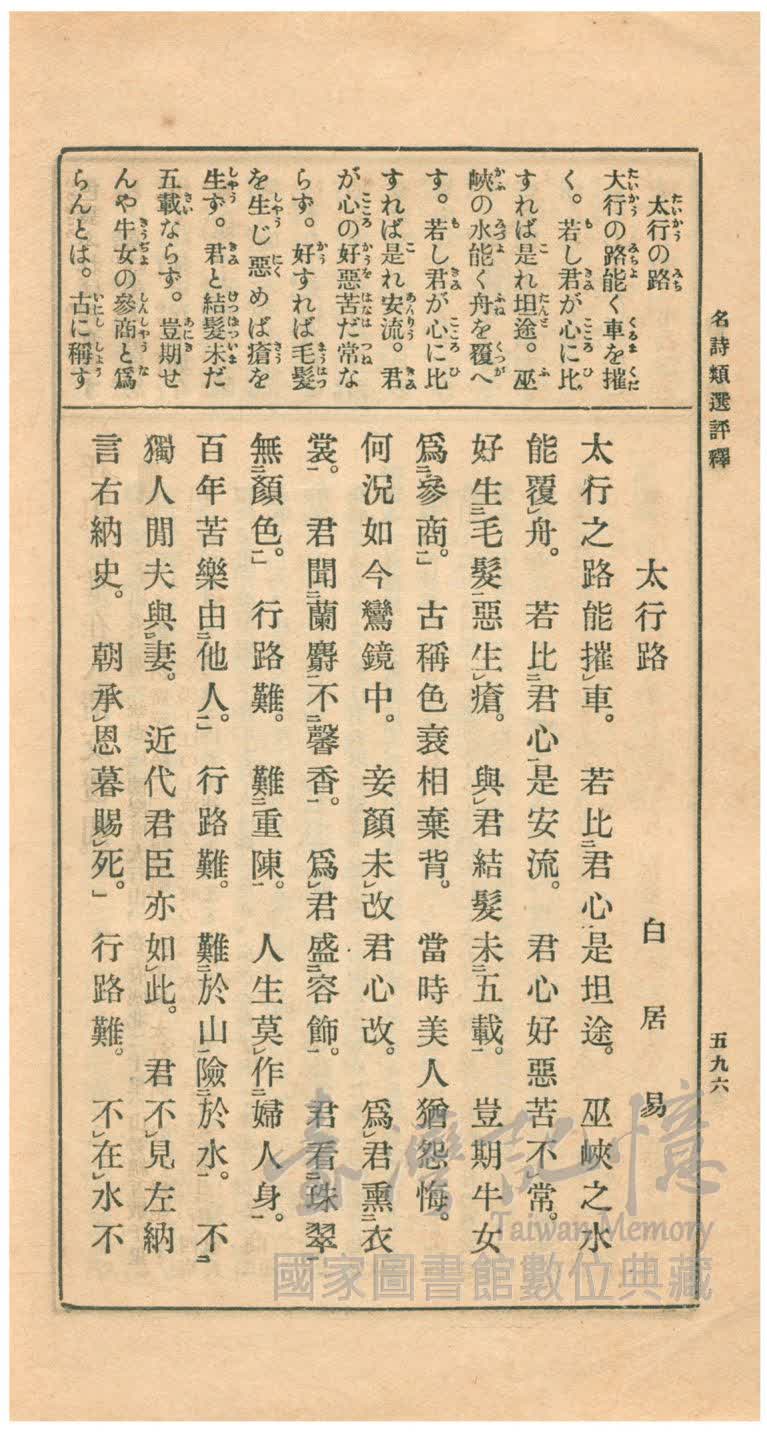 名詩類選評釋
五九六
太行の路
大行の路能く車を摧
く。若し君が心に比
すれば是れ坦途。巫
峽の水能く舟を覆へ
す。若し君が心に比
すれば是れ安流。君
が心の好惡苦だ常な
らず。好すれば毛髮
を生じ惡めば瘡を
生ず。君と結髮未だ
五載ならず。豈期せ
んや牛女の參商と爲
らんとは。古に稱す
太行路
白居易
太行之路能摧車。若比君心是坦途。巫峽之水
能覆舟。若比君心是安流。君心好惡苦不常。
好生毛髮惡生瘡。與君結髮未五載。豈期牛女
爲參商。古稱色衰相棄背。當時美人猶怨悔。
何況如今鸞鏡中。妾顏未改君心改。爲君熏衣
裳。君聞蘭麝不馨香。爲君盛容飾。君看珠翠
無顏色。行路難。難重陳。人生莫作婦人身。
百年苦樂由他人。行路難。難於山險於水。不
獨人閒夫與妻。近代君臣亦如此。君不見左納
言右納史。朝承恩暮賜死。行路難。不在水不
臺灣記憶
Taiwan Memory
國家圖書館數位典藏